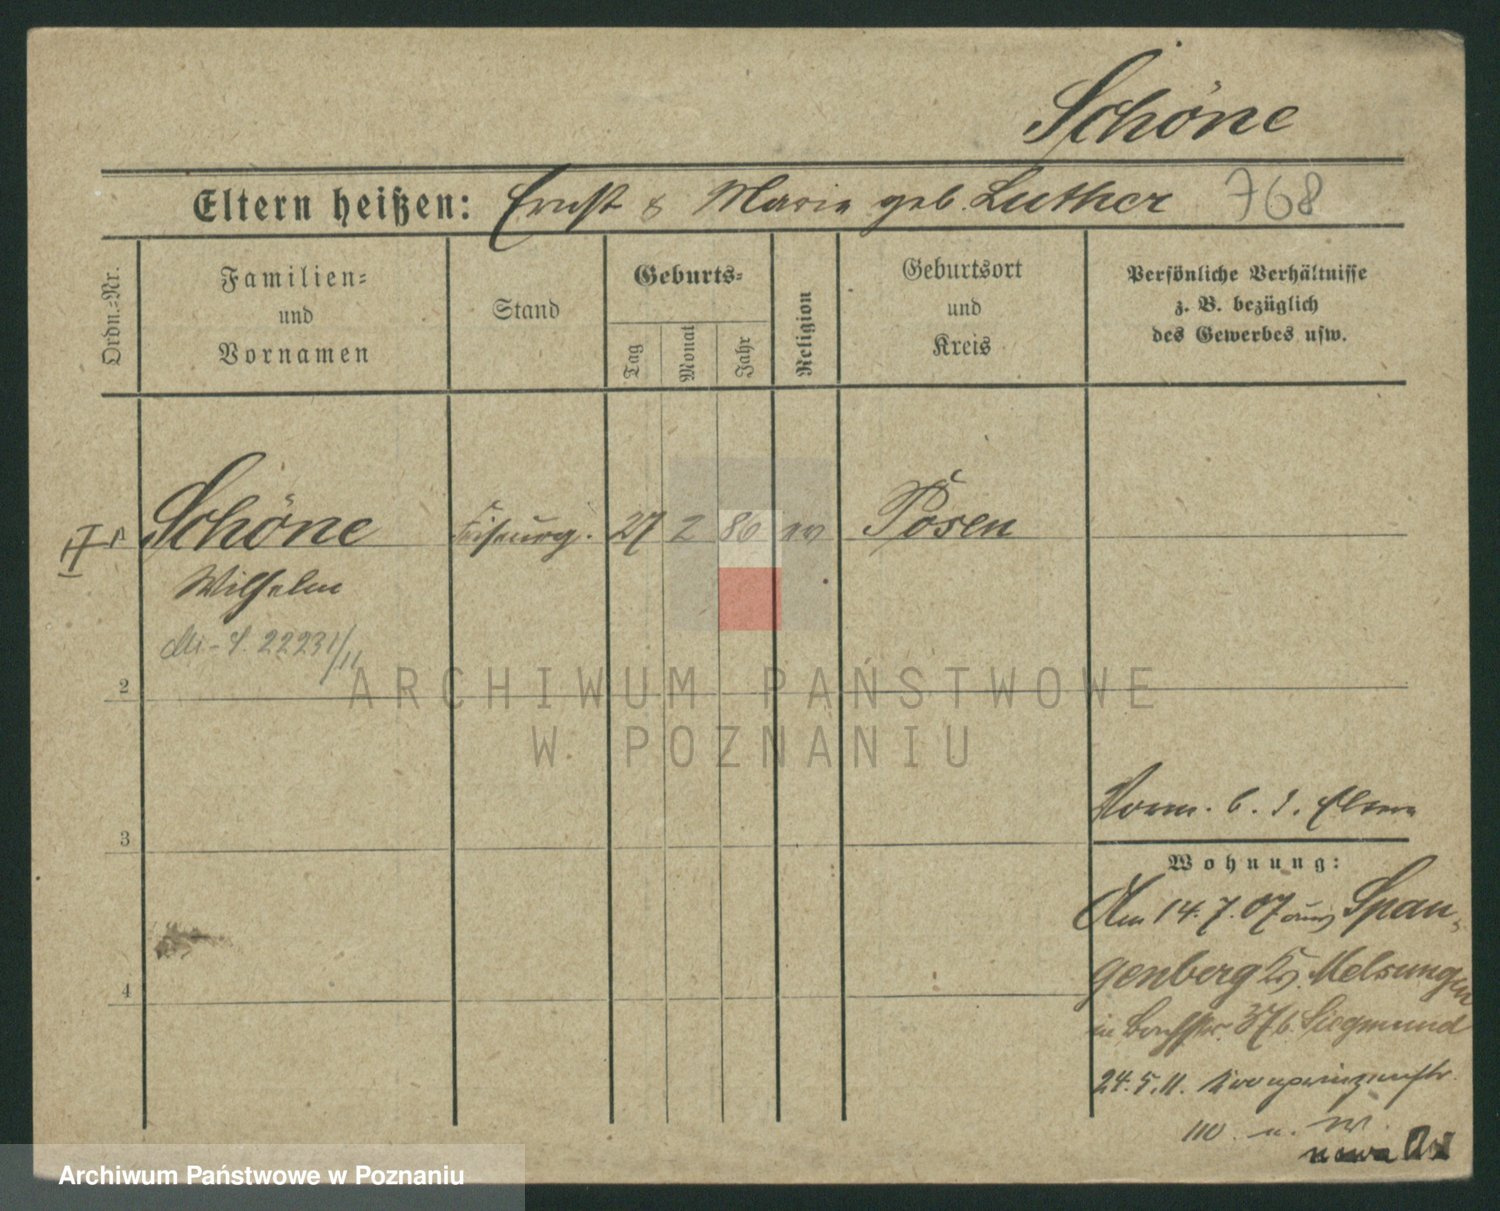 Schöne
Eltern heißen: Ernst & Marie geb. Luther 768
Ordn.-Nr.
Familien-
und
Vornamen
Stand
Geburts-
Tag
Monat
Jahr
Religion
Geburtsort
und
Kreis
Persönliche Verhältnisse
z. B. bezüglich
des Gewerbes usw.
Schöne 27 2 86 ev Posen
Wilhelm
22231/11
2
3
4
Vorm. b. d. Eltern
Wohnung:
Am 14.7.07 aus Span-
genberg Kr. Melsungen
in 37 b. Siegmund
24.5.11. Kronprinzenstr.
110 u. W.
ARCHIWUM PAŃSTWOWE
W POZNANIU
Archiwum Państwowe w Poznaniu